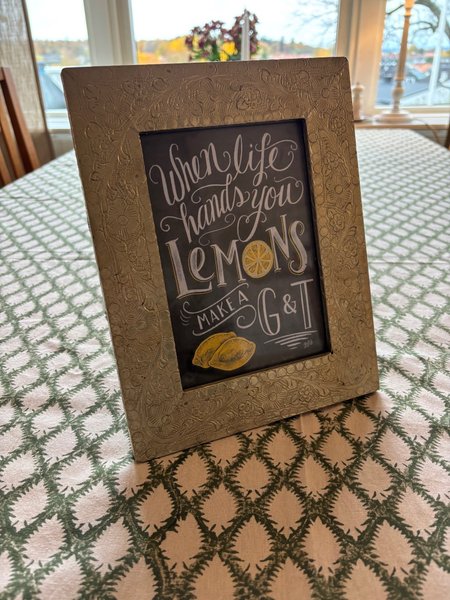 When life
hands you
LEMONS
MAKE A
G & T